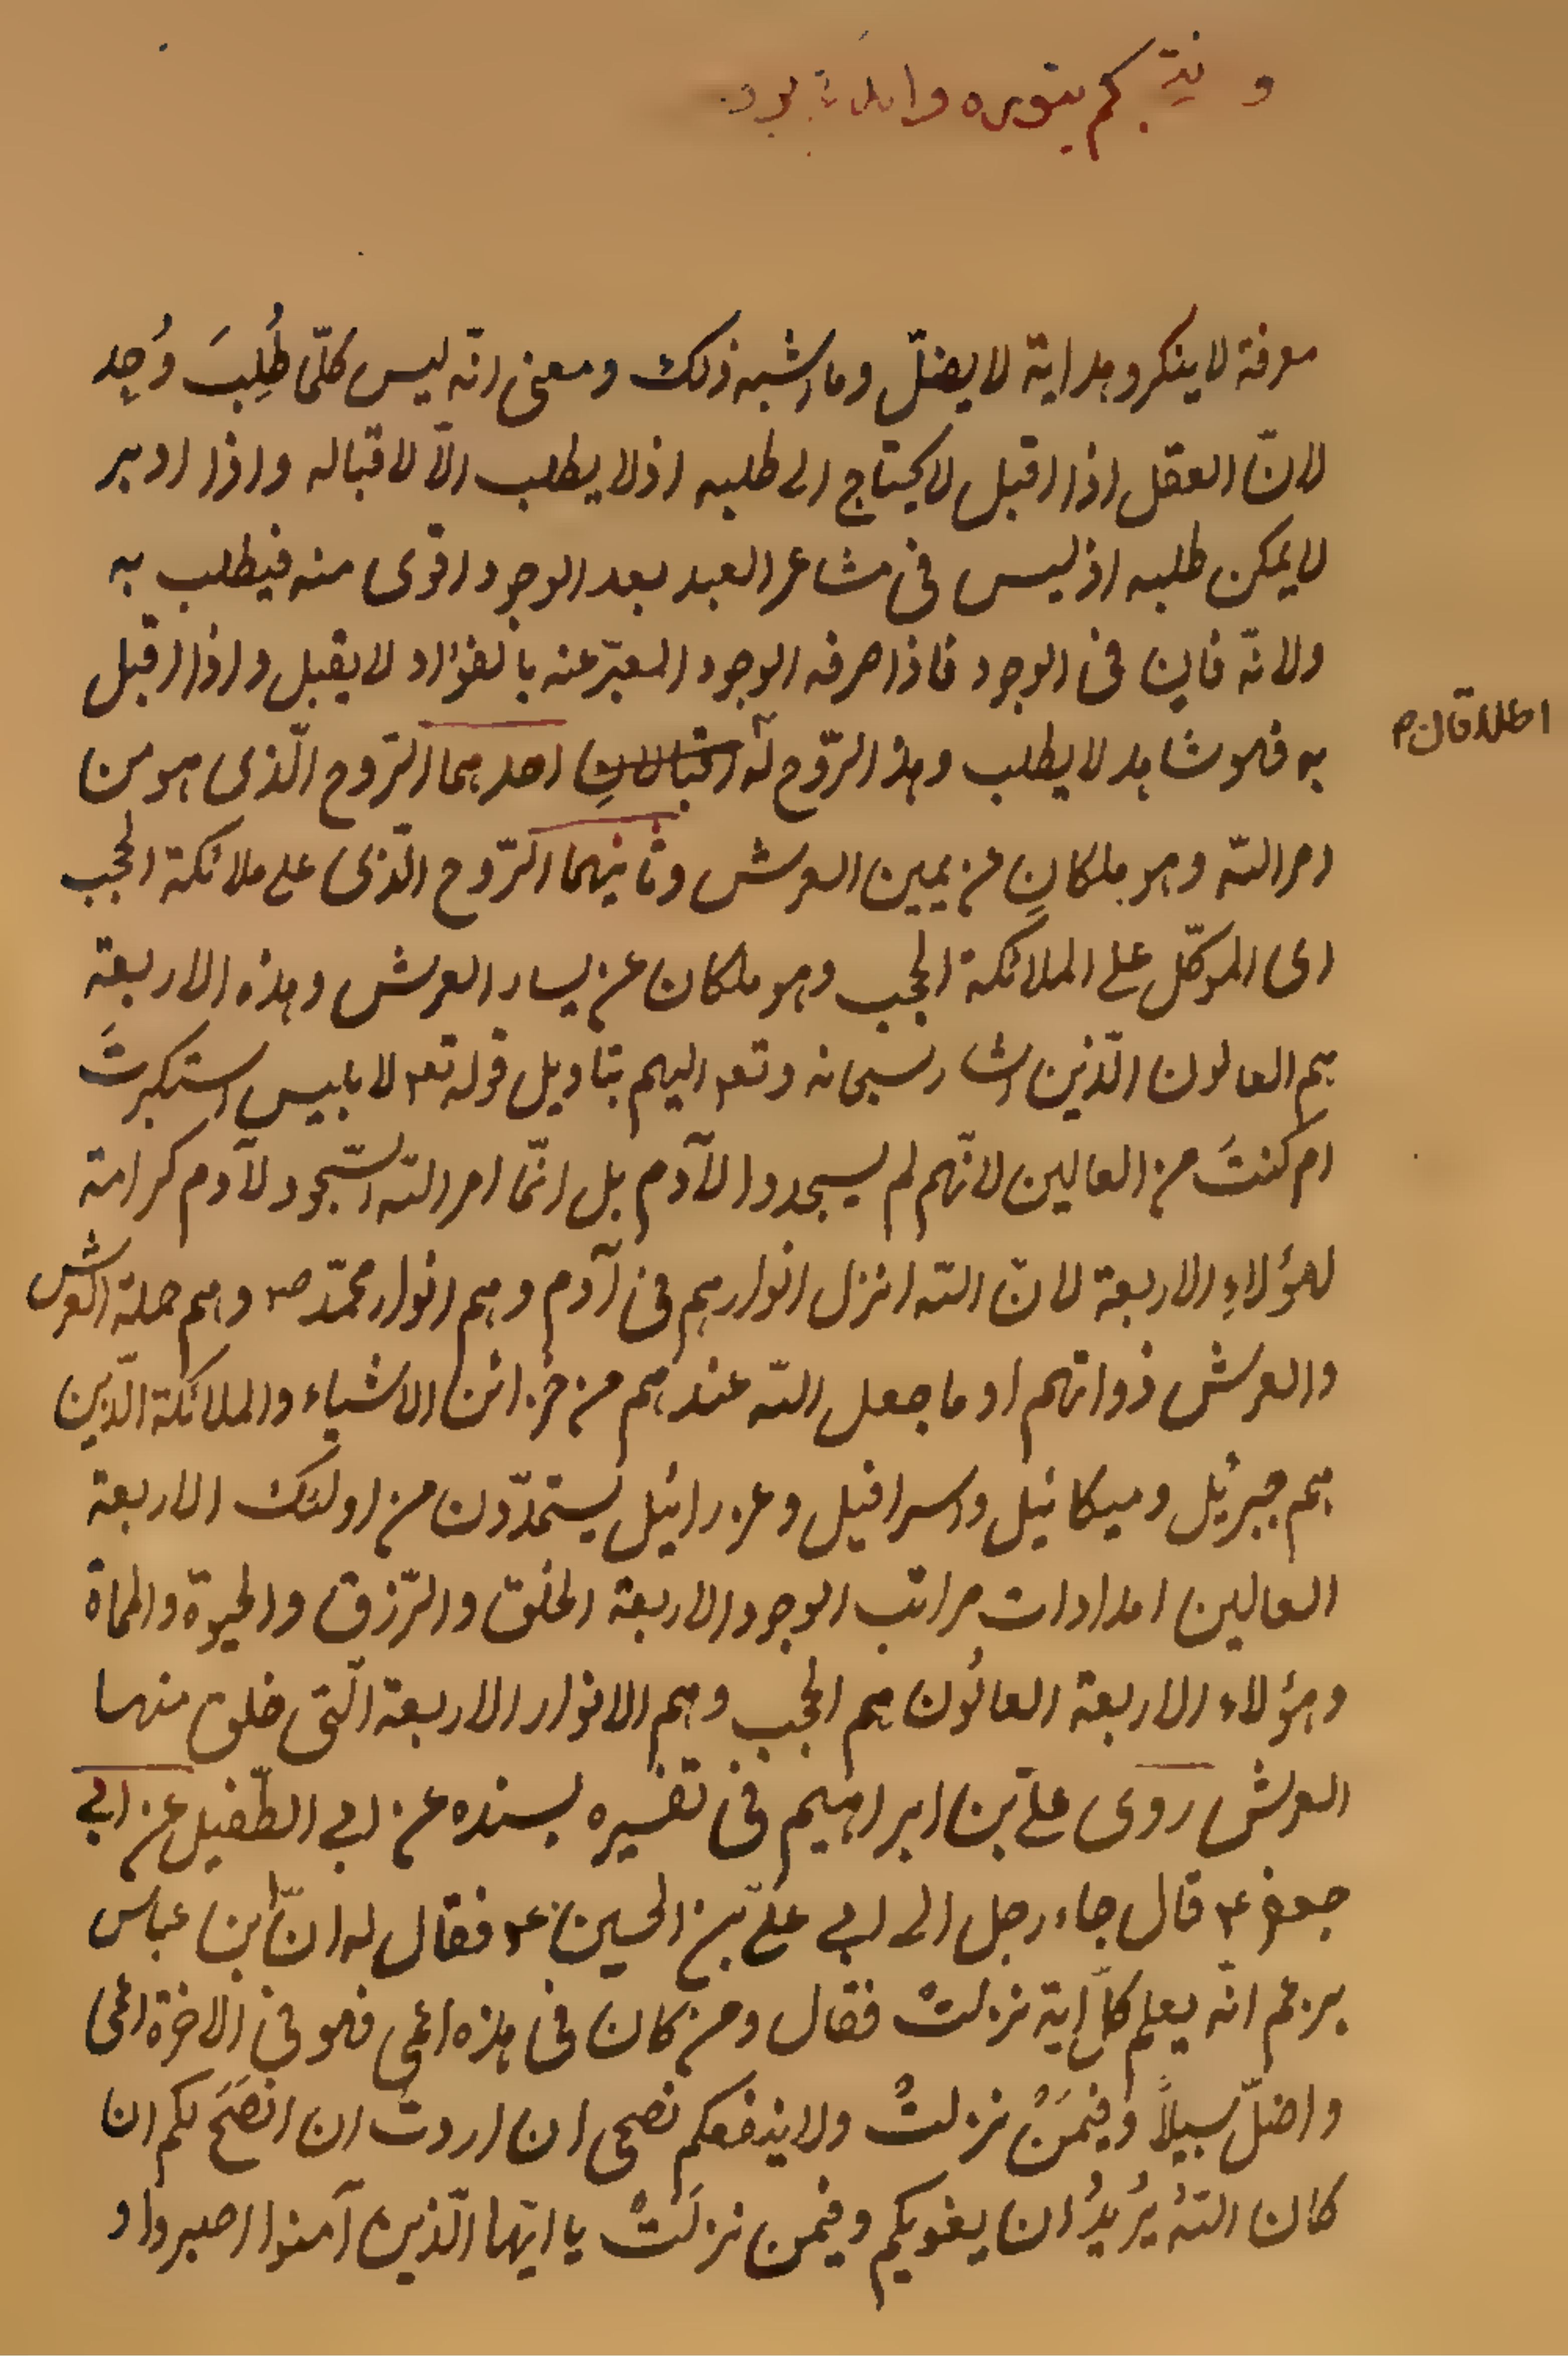 معرفة لا ينكر وهداية لا يضلّ وما اشبه ذلك ومعنى انّه ليس كلّما طُلِبَ وُجِد
لانّ العقل اذا اقبل لا يحتاج الى طلبه اذ لا يطلب الّا لاقباله واذا ادبر
لا يمكن طلبه اذ ليس فى مشاعر العبد بعد الوجود اقوى منه فيطلب به
ولانّه فان فى الوجود فاذا صرفه الوجود المعبّر عنه بالفؤاد لا يقبل واذا اقبل
به فهو شاهد لا يطلب وهذ الرّوح له احدهما الرّوح الّذى هو من
اطلاقان م
امر اللّه وهو ملكانِ عن يمين العرش وثانيهما الرّوح الّذى على ملائكة الحجب
اى الموكّل على الملائكة الحجب وهو ملكان عن يسار العرش وهذه الاربعة
هم العالون الّذين اشار سبحانه وتعـ اليهم بتاويل قوله تعـ لابليس استكبرتَ
ام كنتَ من العالين لانّهم لم يسجدوا لآدم بل انّما امر اللّه السّجود لآدم كرامة
لهؤلاءِ الاربعة لانّ اللّه انزل انوارهم فى آدم وهم انوار محمّد صـ وهم حملة العرش
والعرش ذواتهم او ما جعل اللّه عندهم من خزائن الاشياء والملائكة الّذين
هم جبرئيل وميكائيل واسرافيل وعزرائيل يستمدّون من اولئك الاربعة
العالين امدادات مراتب الوجود الاربعة الخلق والرّزق والحيوة والمماة
وهؤلاء الاربعة العالُون هم الحجب وهم الانوار الاربعة الّتى خلق منها
العرش روى علىّ بن ابراهيم فى تفسيره بسنده عن ابى الطّفيل عن ابى
جعفر عـ قال جاء رجل الى ابى علىّ بن الحسين عـ فقال له انّ ابن عباس
يزعم انّه يعلم كلّ اية نزلتْ فقال ومن كان فى هذه اعمى فهو فى الاخرة اعمى
واضلّ سبيلاً وفيمَنْ نزلتْ ولا ينفعكم نصحى ان اردتُ ان انصَحَ لكم ان
كان اللّهُ يُرِيدُ ان يغويكم وفيمن نزلَتْ يا ايّها الّذين آمنوا اصبروا و